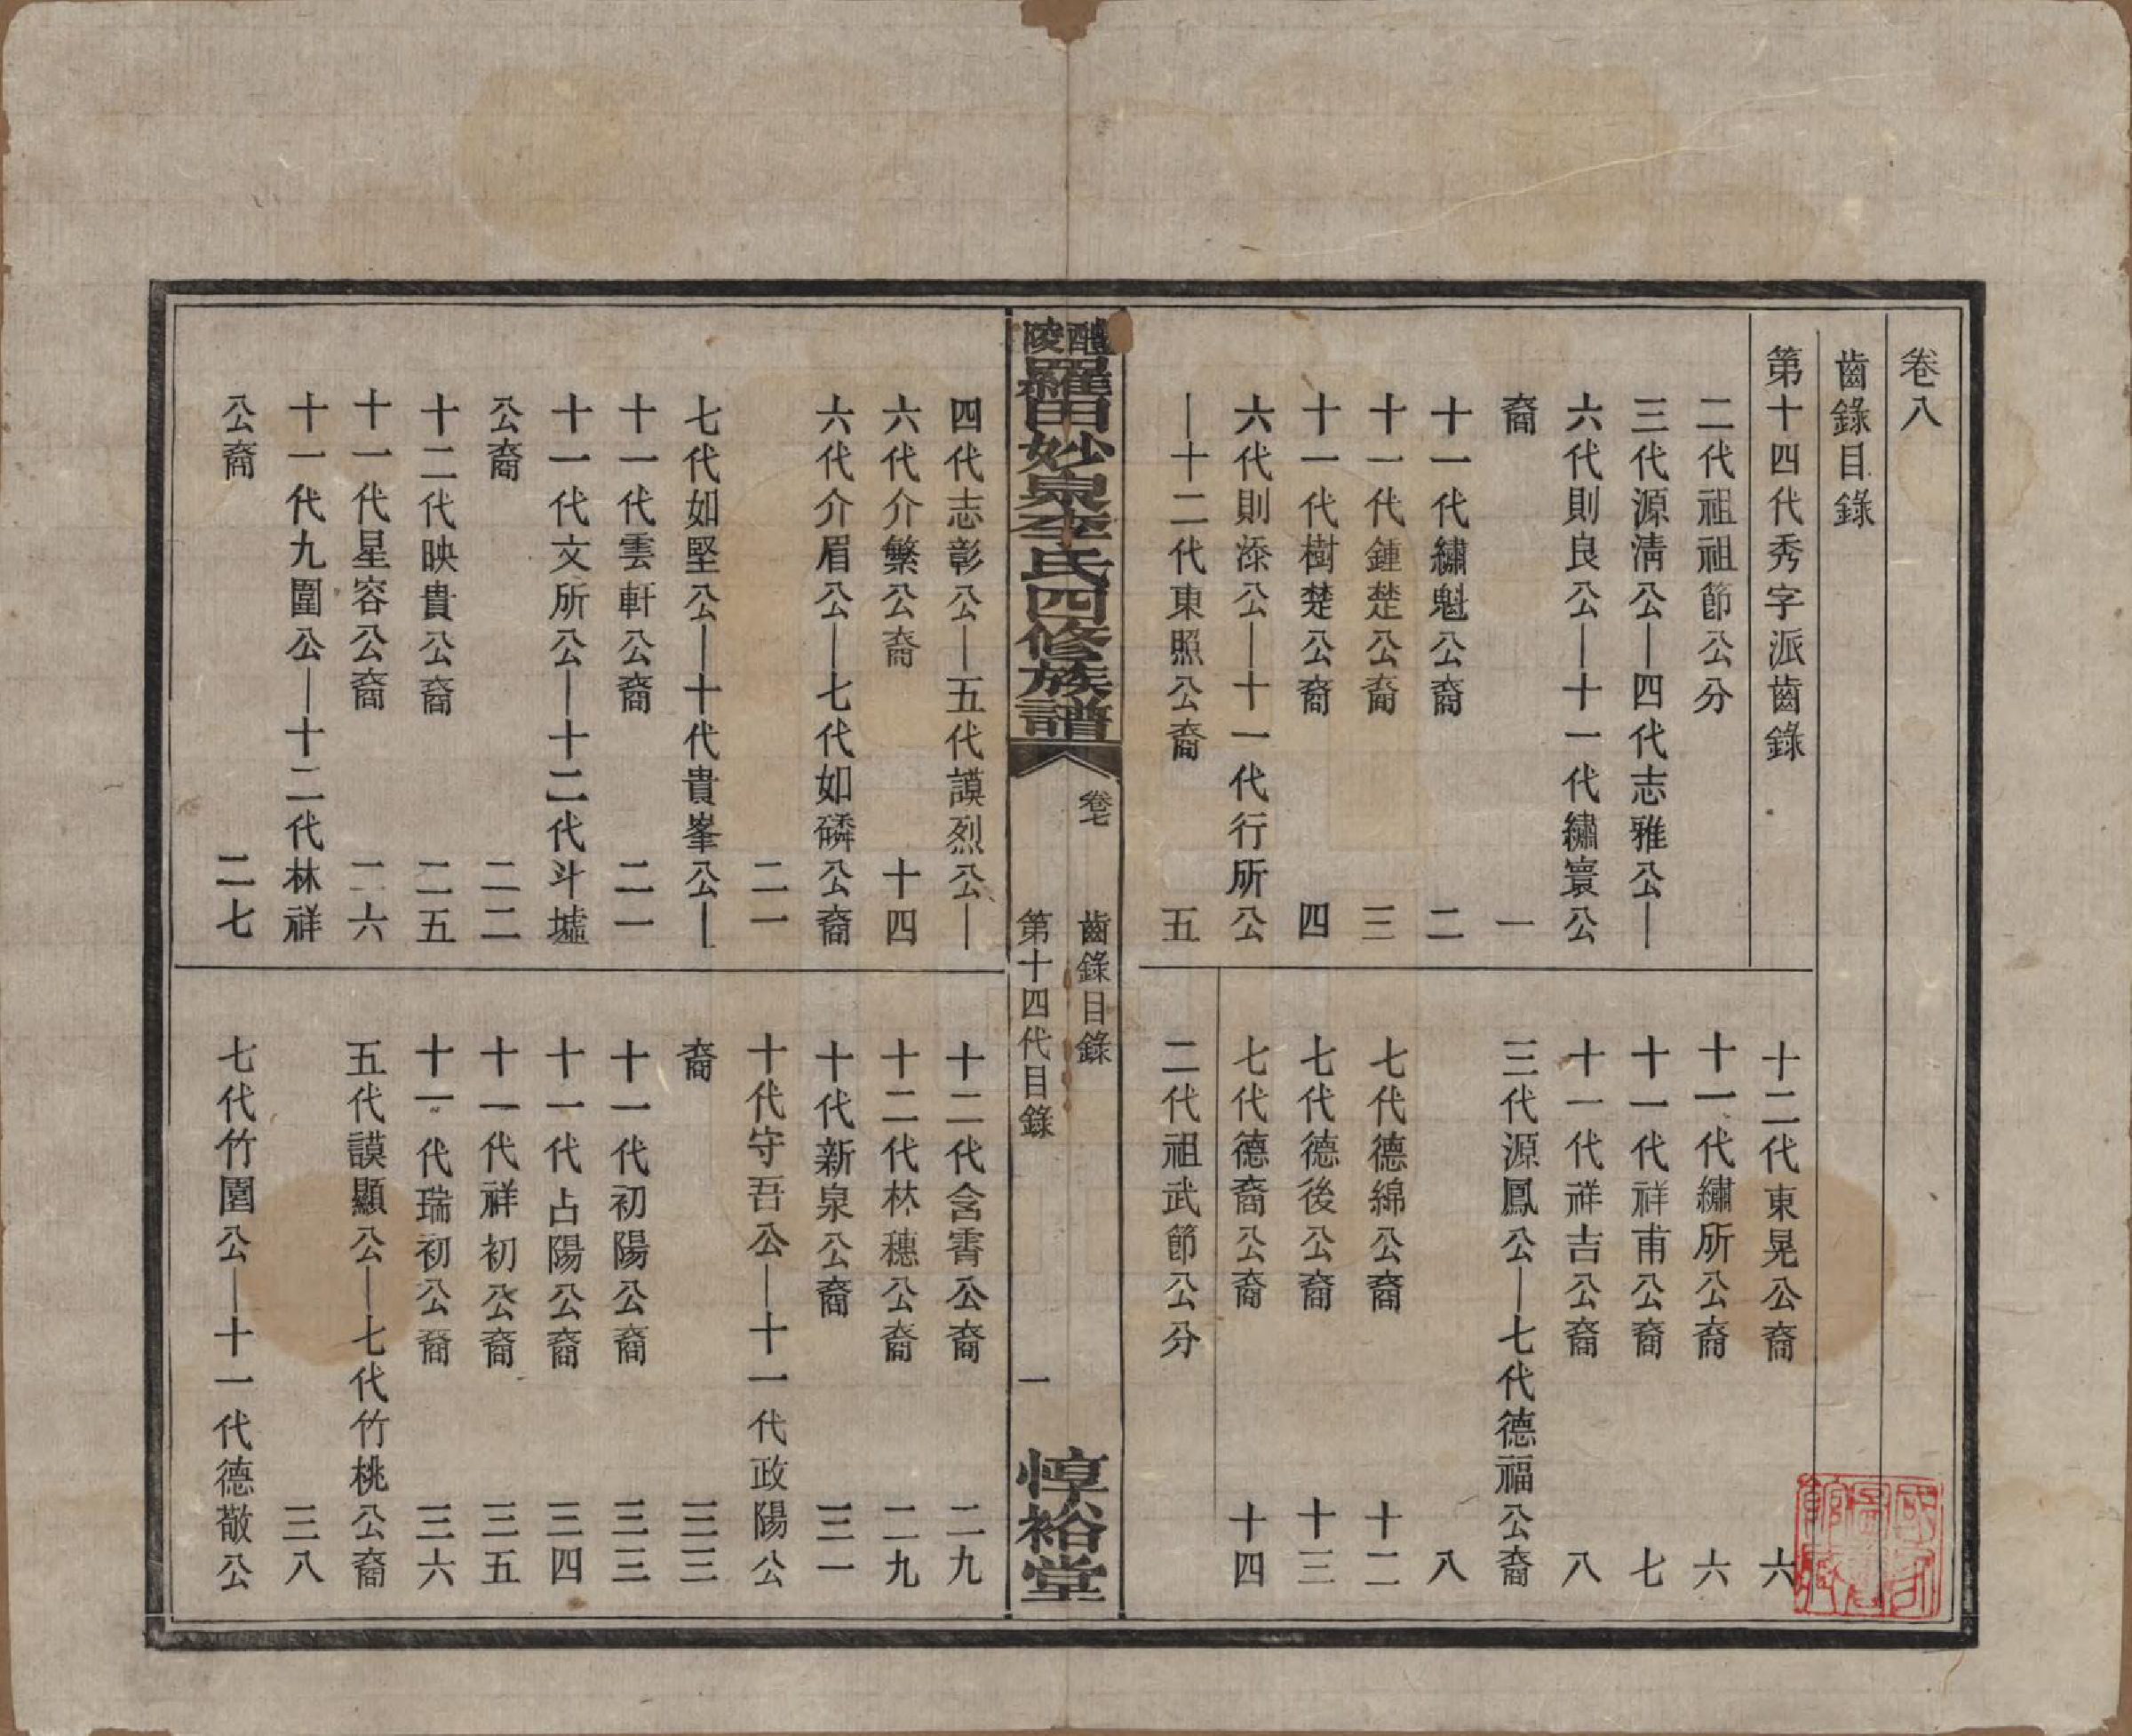 卷八
齒錄目錄
第十四代秀字派齒錄
二代祖祖節公分
三代源清公—四代志雅公—
六代則良公—十一代繡寰公
裔　一
十一代繡魁公裔　二
十一代鍾楚公裔　三
十一代樹楚公裔　四
六代則添公—十一代行所公
—十二代東照公裔　五
十二代東晃公裔　六
十一代繡所公裔　六
十一代祥甫公裔　七
十一代祥吉公裔　八
三代源鳳公—七代德福公裔
八
七代德綿公裔　十二
七代德後公裔　十三
七代德裔公裔　十四
二代祖武節公分
醴陵羅田妙泉李氏四修族譜
卷七
齒錄目錄
第十四代目錄
一
惇裕堂
四代志彰公—五代謨烈公—
六代介繁公裔　十四
六代介眉公—七代如磷公裔
二一
七代如堅公—十代貴峯公—
十一代雲軒公裔　二一
十一代文所公—十二代斗墟
公裔　二二
十二代映貴公裔　二五
十一代星容公裔　二六
十一代九圍公—十二代林祥
公裔　二七
十二代含霄公裔　二九
十二代林穗公裔　二九
十代新泉公裔　三一
十代守吾公—十一代政陽公
裔　三三
十一代初陽公裔　三三
十一代占陽公裔　三四
十一代祥初公裔　三五
十一代瑞初公裔　三六
五代謨顯公—七代竹桃公裔
三八
七代竹圍公—十一代德敬公